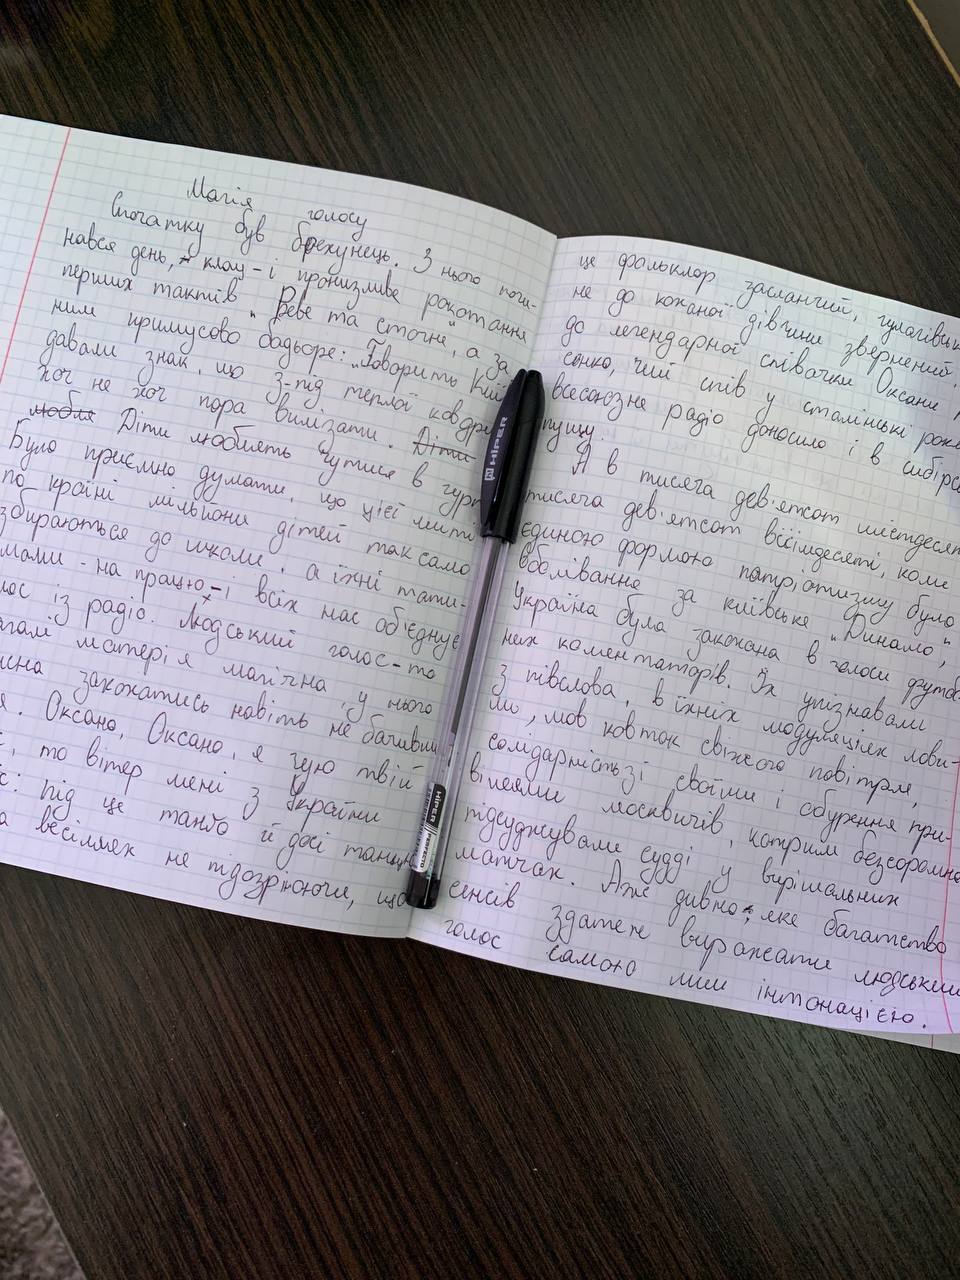 Магія голосу
Спочатку був брехунець. З нього почи-
нався день, клац - і пронизливе рокотання
перших тактів "Реве та стогне", а за
ним примусово бадьоре: "Говорить Київ
давали знак, що з-під теплої ковдри
хоч не хоч пора вилізати. Діти
любля Діти люблять чутися в гурт
Було приємно думати, що цієї миті
по країні мільйони дітей так само
збираються до школи, а їхні тати-
мами - на працю - і всіх нас об'єднує
лос із радіо. Людський голос - то
агалі матерія магічна, у нього
жна закохатись навіть не бачивши
я. Оксано, Оксано, я чую твій
с, то вітер мені з України
с: під це танго й досі танцю
а весіллях не підозрюючи, що
це фольклор засланчий, гулагівськ
не до коханої дівчини звернений,
до легендарної співачки Оксани
сенко, чий спів у сталінські роки
всесоюзне радіо доносило і в сибірс
пущу.
А в тисяча дев'ятсот шістдесят
тисяча дев'ятсот вісімдесяті, коли
єдиною формою патріотизму було
вболівання за київське "Динамо",
Україна була закохана в голоси футбо
них коментаторів. Їх упізнавали
з півслова, в їхніх модуляціях лови-
ли, мов ковток свіжого повітря,
солідарність зі своїми і обурення при-
вілеями москвичів, котрим безсоромно
підсуджували судді у вирішальних
матчах. Аж дивно, яке багатство
сенсів здатен виражати людський
голос самою лиш інтонацією.
HIPER
HIPER